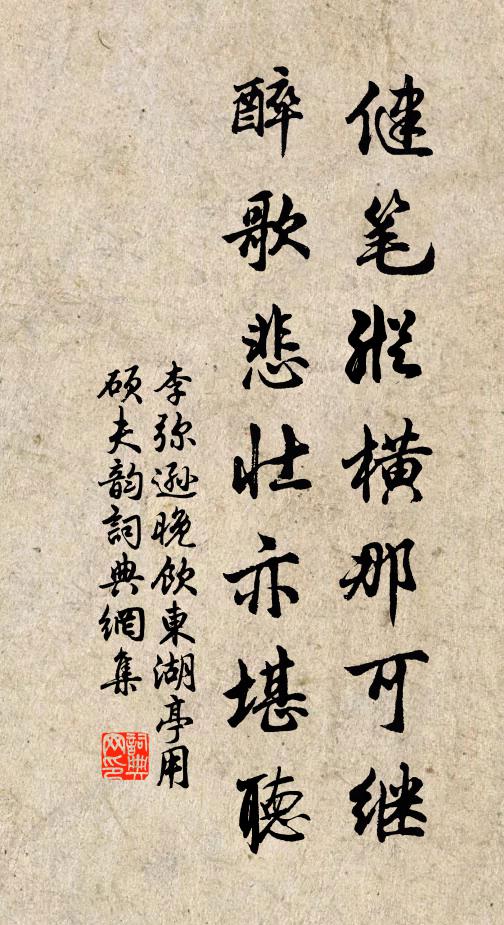 健笔纵横那可继
醉歌悲壮亦堪聽
李弥遜晚饮東湖亭用
硕夫韵詞典網集
詞典网印